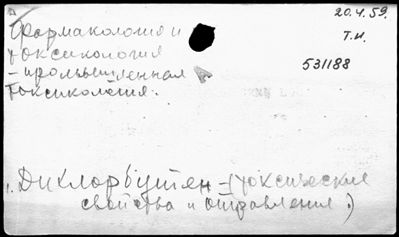 Фармакология и
токсикология
- промышленная
токсикология.
20.4.59.
Т.И.
531188
1. Дихлорбутен - (токсические
свойства и отравления)